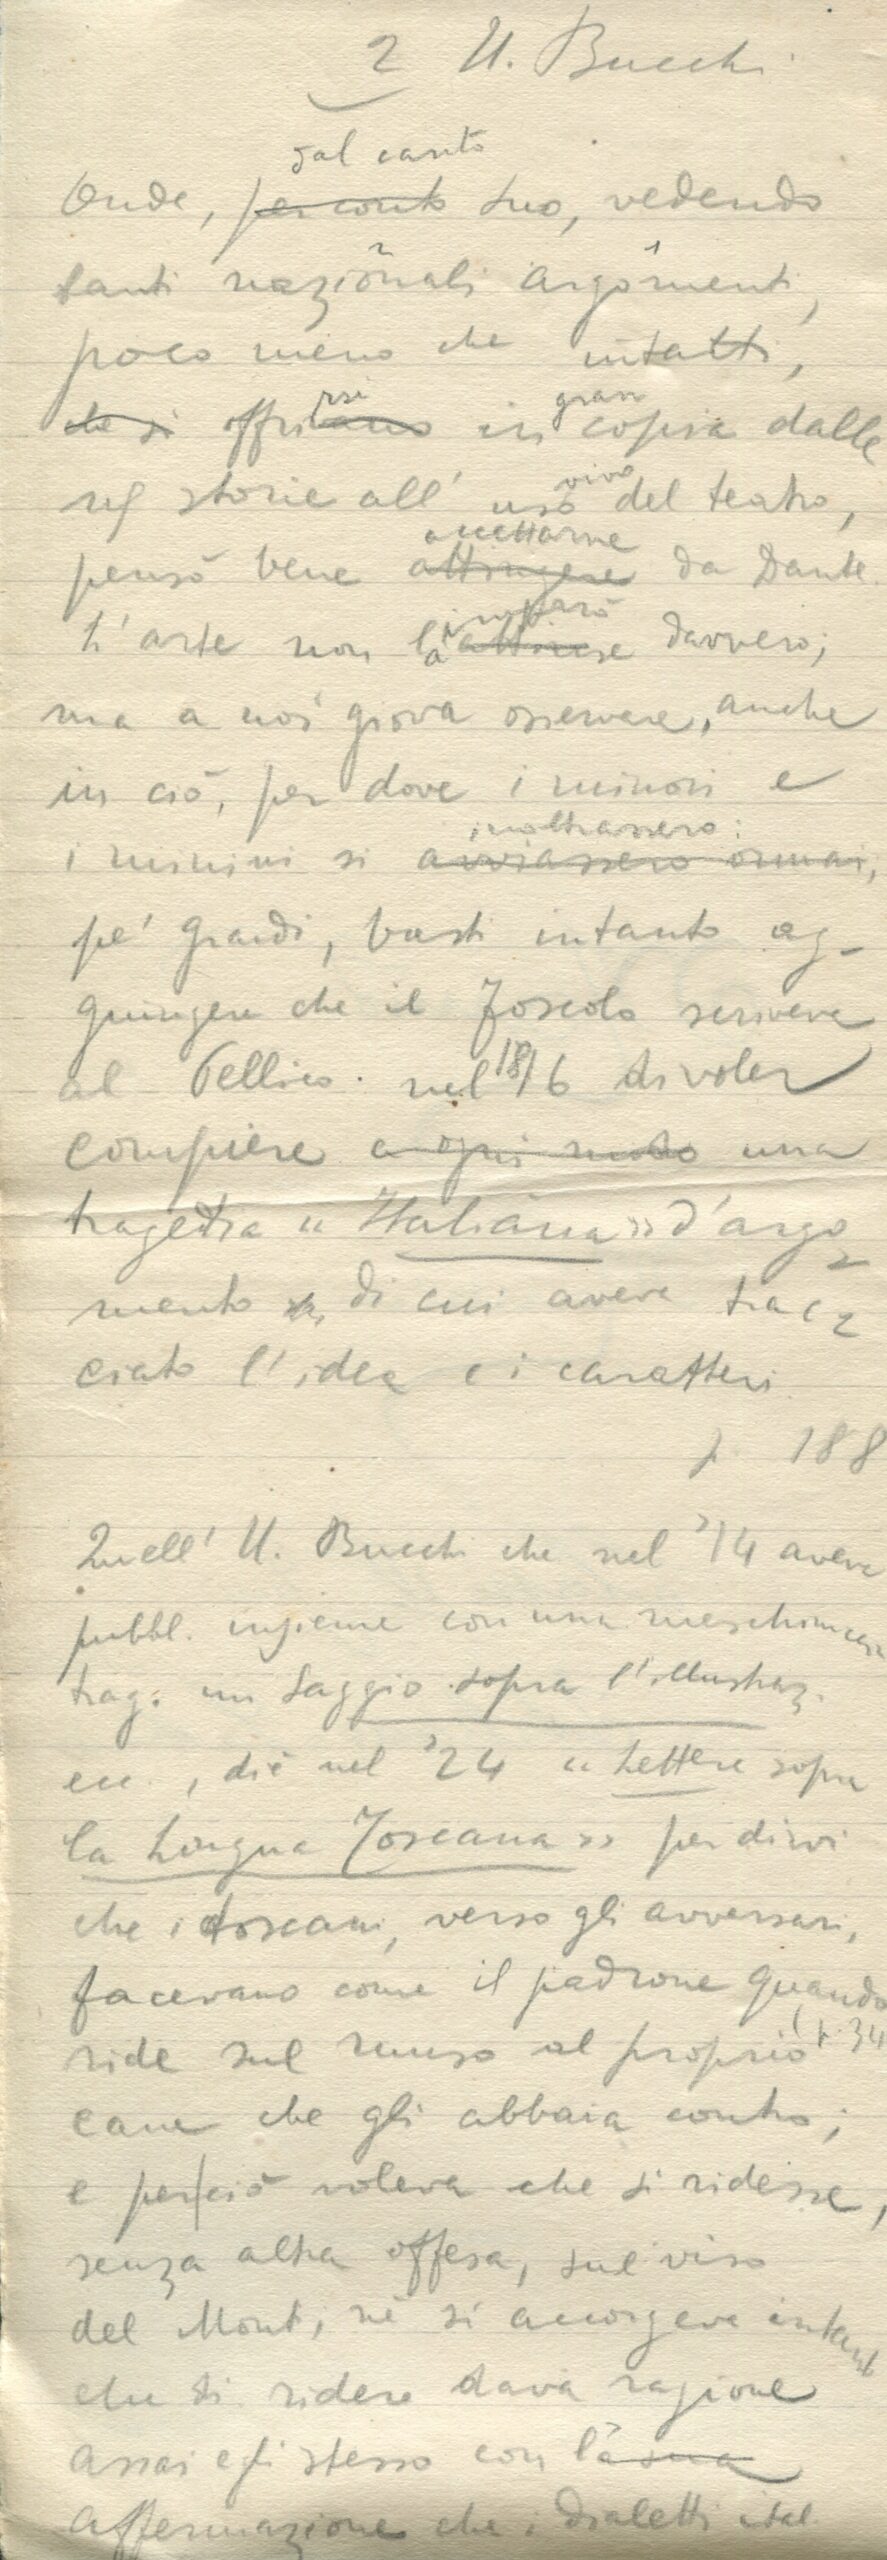 2 U. Bucchi
dal canto
Onde, per conto suo, vedendo
tanti nazionali argomenti,
poco meno che intatti,
rsi gran
che si offrivano in copia dalle
vivo
storie all' uso del teatro,
accettarne
pensò bene attingere da Dante.
imparò
L'arte non la attinse davvero;
ma a noi giova osservare, anche
in ciò, per dove i minori e
inoltrassero:
i minimi si avviassero ormai,
pe' grandi, basti intanto ag-
giungere che il Foscolo scriveva
al Pellico nel 1816 di voler
compiere a ogni modo una
tragedia « Italiana » d'argo
mento di cui aveva trac
ciato l'idea e i caratteri
p. 188
Quell' U. Bucchi che nel '14 aveva
pubbl. insieme con una meschinissima
trag. un Saggio sopra l'illustraz.
ecc., diè nel '24 « Lettere sopra
la Lingua Toscana » per dirvi
che i toscani, verso gli avversari,
facevano come il padrone quando
(p. 34
ride sul muso al proprio
cane che gli abbaia contro;
e perciò voleva che si ridesse,
senza altra offesa, sul viso
del Monti, nè si accorgeva intanto
che di ridere dava ragione
assai egli stesso con la sua
affermazione che i dialetti ital.